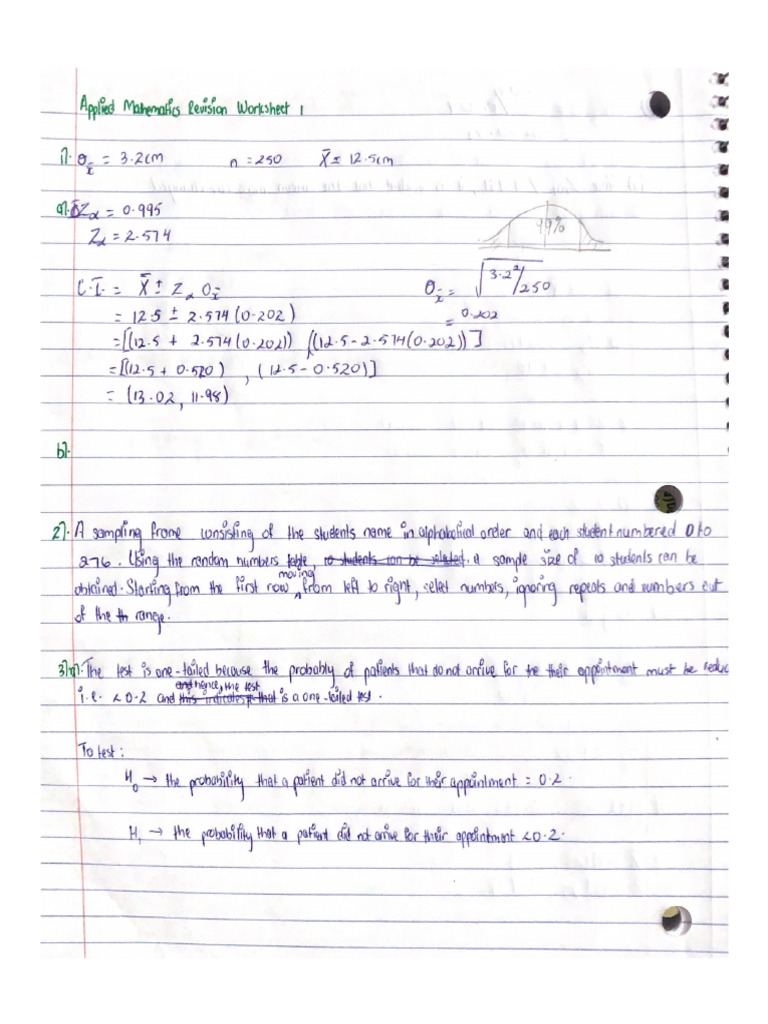 Applied Mathematics Revision Worksheet 1
1). σx̄ = 3.2cm n = 250 X̄ = 12.5cm
a). Zα = 0.995
Zα = 2.574
99%
C.I. = X̄ ± Zα σx̄
σx̄ = √3.2²/250
= 12.5 ± 2.574(0.202)
= 0.202
= [(12.5 + 2.574(0.202)) , ((12.5 - 2.574(0.202))]
= [(12.5 + 0.520) , (12.5 - 0.520)]
= (13.02, 11.98)
b).
2). A sampling frame consisting of the students name in alphabetical order and each student numbered 0 to
276. Using the random numbers table, to students can be selected. a sample size of 10 students can be
obtained. Starting from the first row moving from left to right, select numbers, ignoring repeats and numbers out
of the th range.
3)a). The test is one-tailed because the probably of patients that do not arrive for the their appointment must be reduc
i.e. <0.2 and this indicates and hence, the test that is a one-tailed test.
To test:
H₀ → the probability that a patient did not arrive for their appointment = 0.2.
H₁ → the probability that a patient did not arrive for their appointment <0.2.